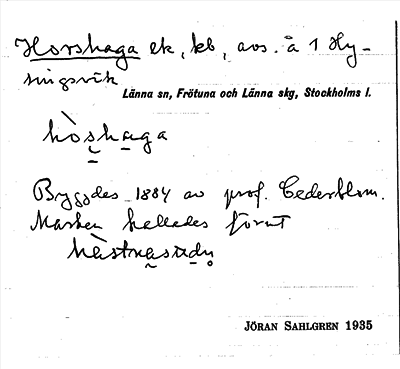 Horshaga ek, kb, avs. å 1 Hy-
singsvik
Länna sn, Frötuna och Länna skg, Stockholms l.
hòshaga
Byggdes 1884 av prof. Cederblom.
Marken kallades förut